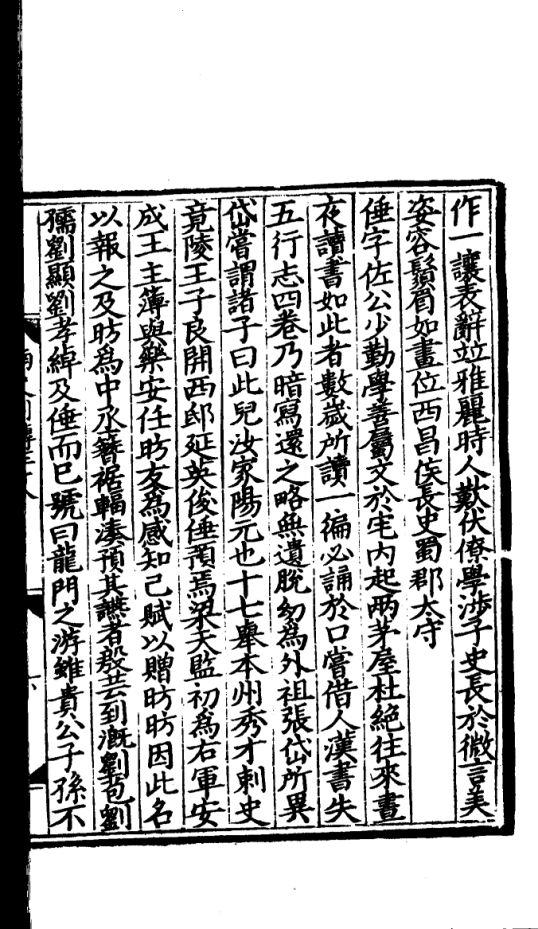 作一讓表辭竝雅麗時人歎伏僚學涉子史長於微言美
姿容鬚眉如畫位西昌侯長史蜀郡太守
倕字佐公少勤學善屬文於宅内起兩茅屋杜絶往來晝
夜讀書如此者數歲所讀一徧必誦於口嘗借人漢書失
五行志四卷乃暗寫還之略無遺脫幼為外祖張岱所異
岱嘗謂諸子曰此兒汝家陽元也十七舉本州秀才刺史
竟陵王子良開西邸延英俊倕預焉梁天監初為右軍安
成王主簿與樂安任昉友為感知己賦以贈昉昉因此名
以報之及昉為中丞簪裾輻湊預其讌者殷芸到溉劉苞劉
孺劉顯劉孝綽及倕而已號曰龍門之游雖貴公子孫不